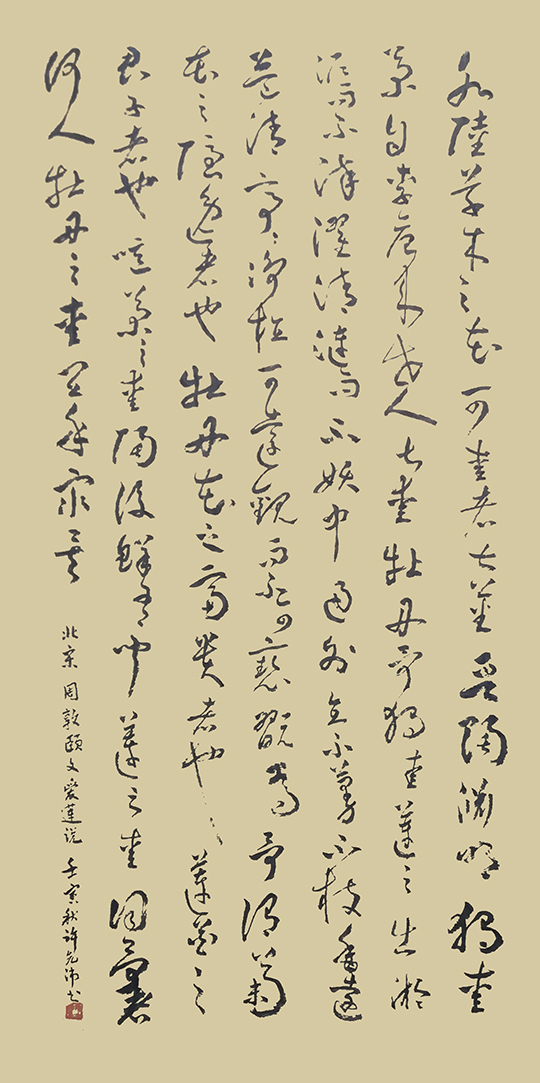 水陸草木之花可愛者甚蕃晉陶淵明獨愛
菊自李唐來世人甚愛牡丹予獨愛蓮之出淤
泥而不滓濯清漣而不妖中通外直不蔓不枝香遠
益清亭亭淨植可遠觀而不可褻翫焉予謂菊
花之隱逸者也牡丹花之富貴者也蓮花之
君子者也噫菊之愛陶後鮮有聞蓮之愛同予者
何人牡丹之愛宜乎眾矣
北宋 周敦頤文愛蓮說 壬寅秋許書